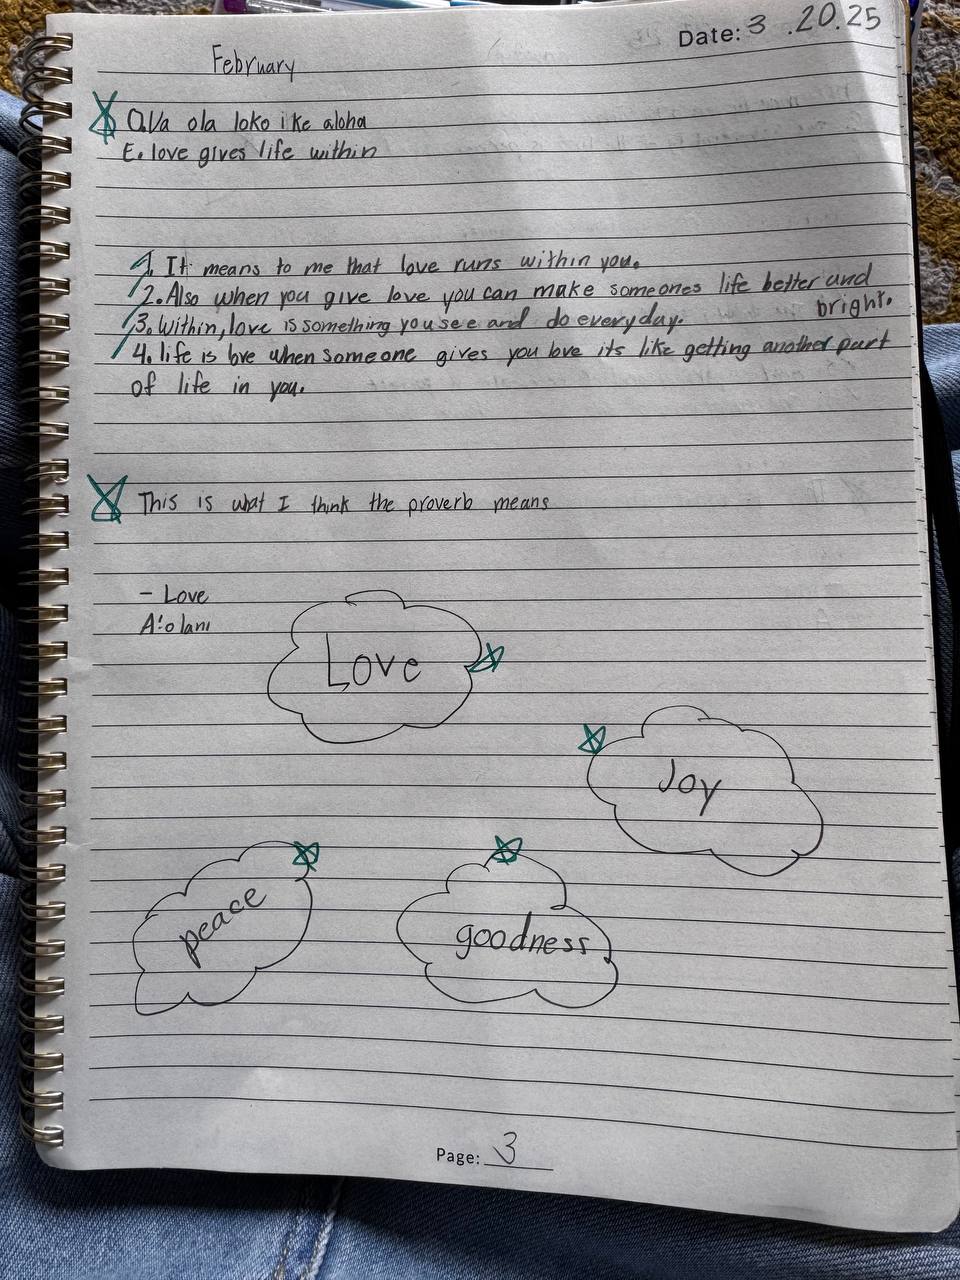 Date: 3.20.25
February
Ola ola loko i ke aloha
E. love gives life within
1. It means to me that love runs within you.
2. Also when you give love you can make someones life better and
bright.
3. Within, love is something you see and do everyday.
4. life is love when someone gives you love its like getting another part
of life in you.
This is what I think the proverb means
- Love
A'olani
Love
Joy
peace
goodness
Page: 3